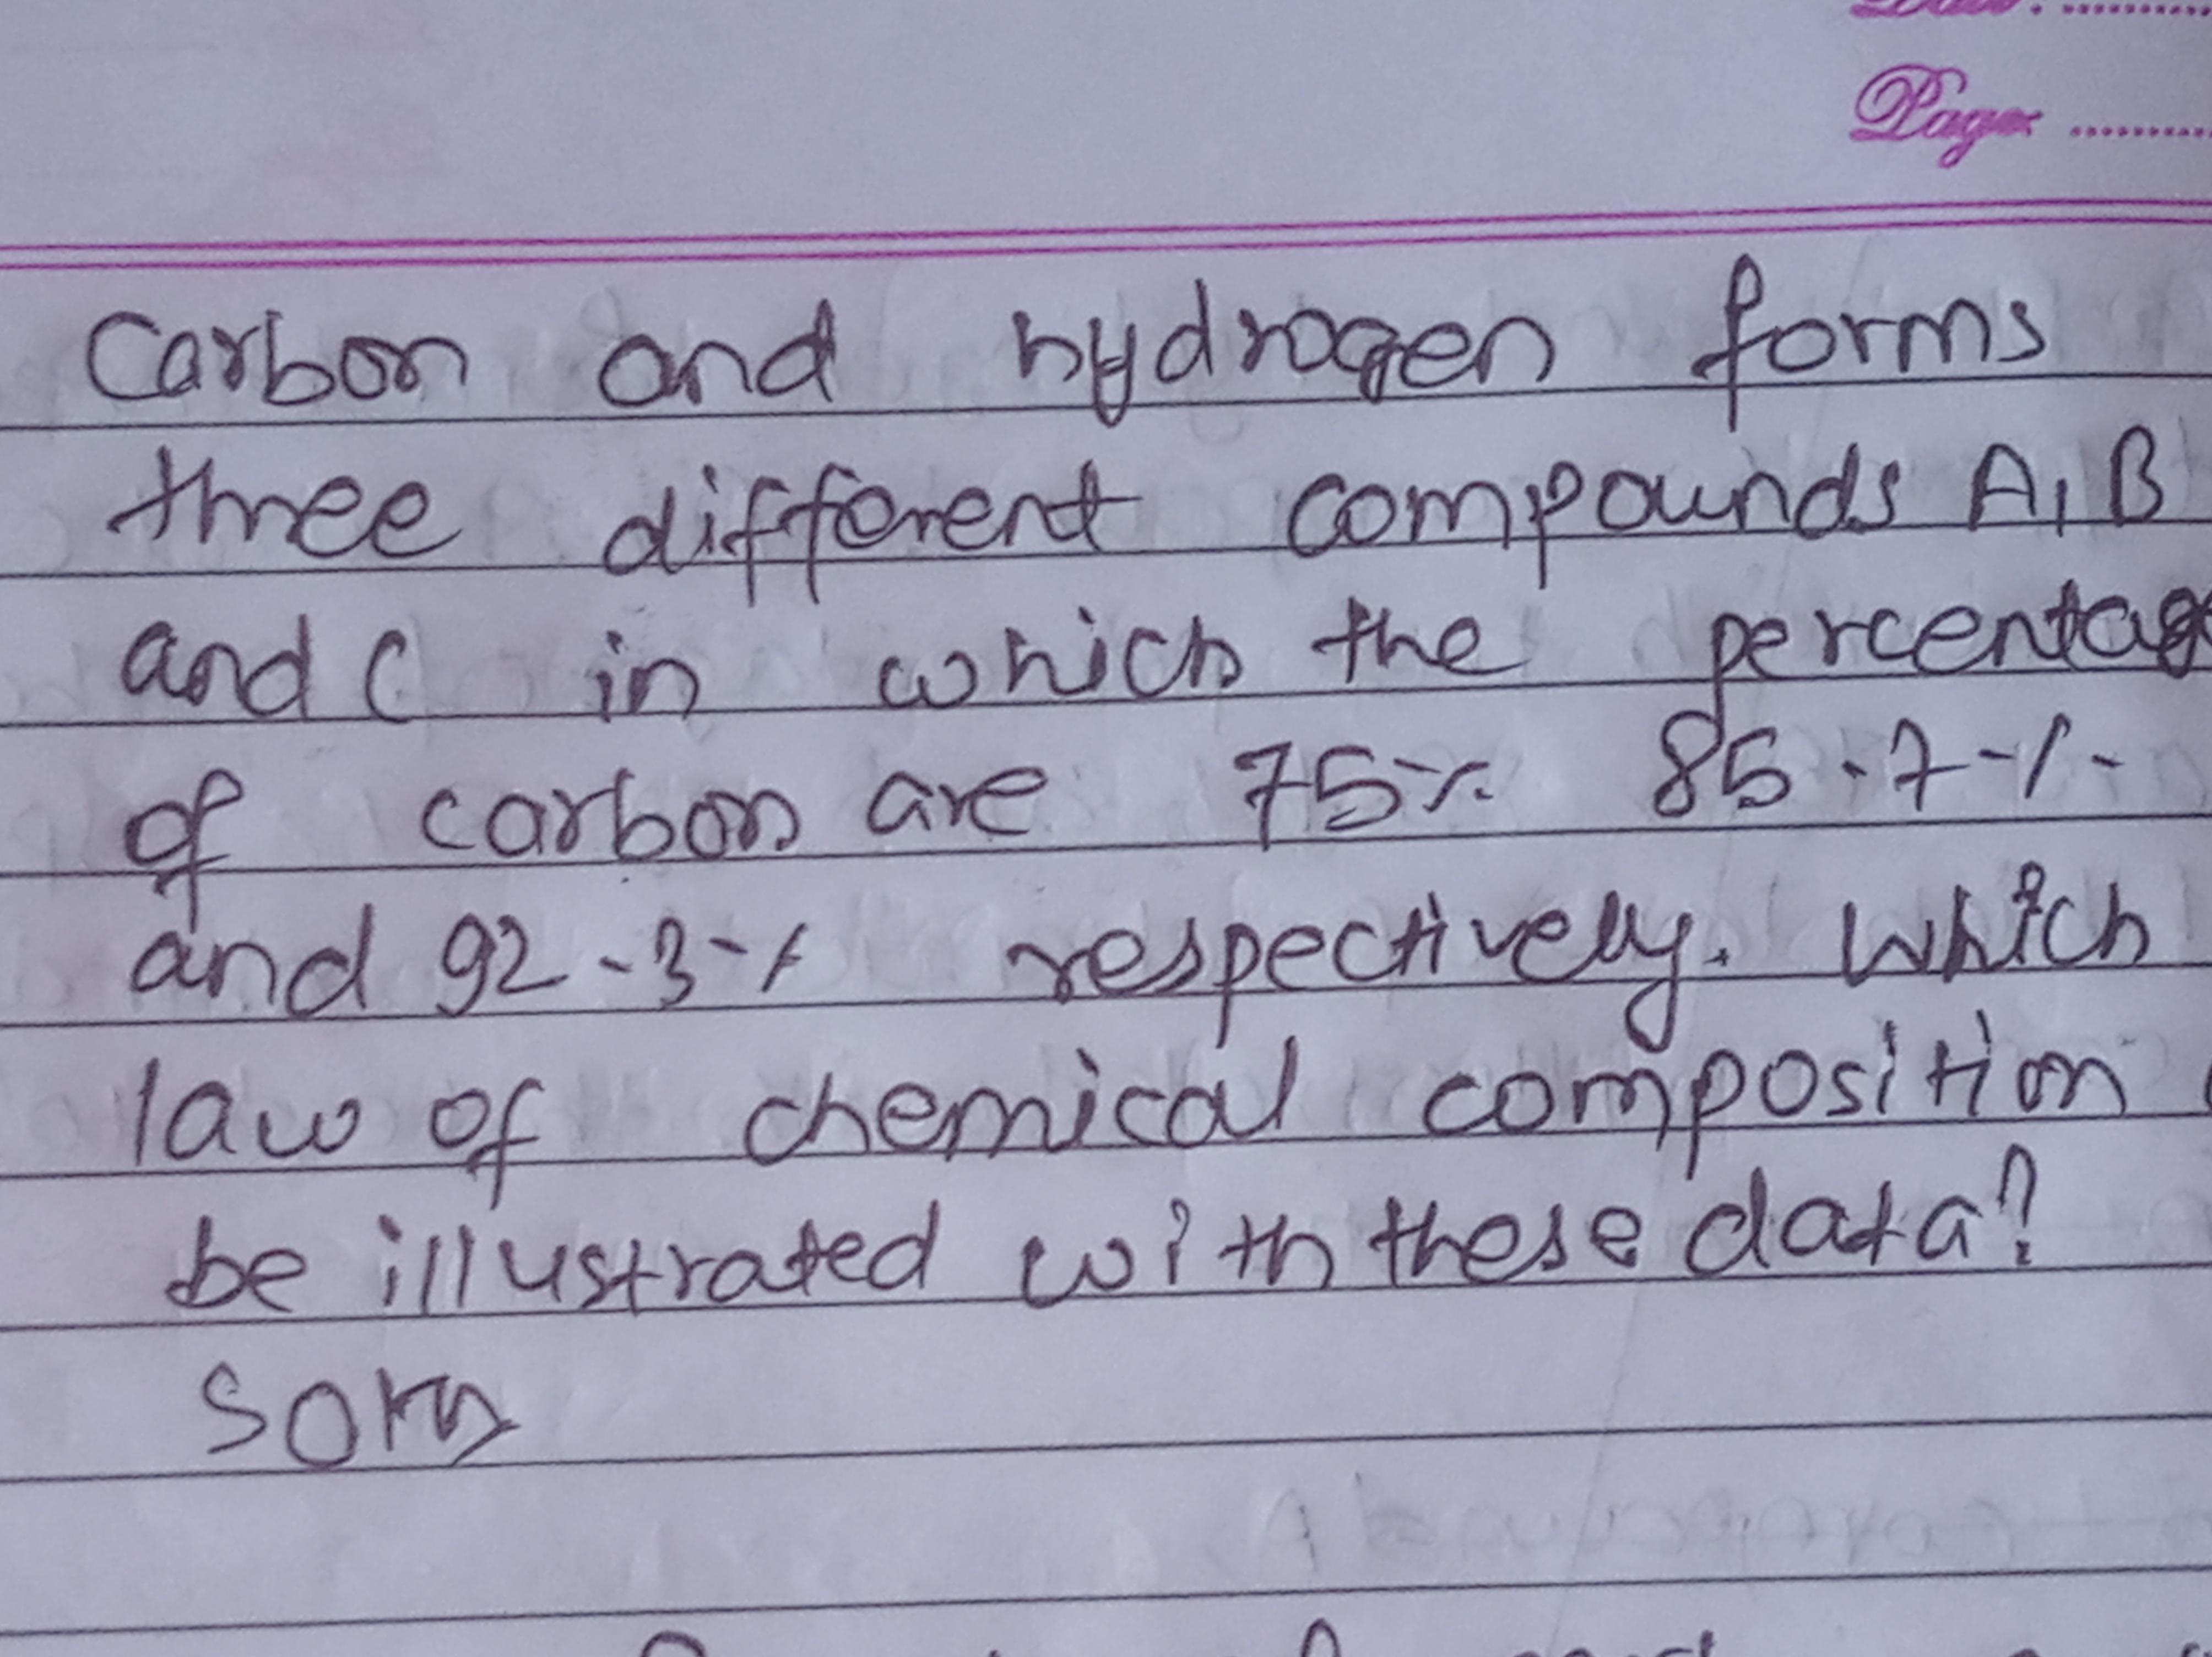 Page
Carbon and hydrogen forms
three different compounds A, B
and C in which the percentag
of carbon are 75% 85.7%
and 92.3% respectively. Which
law of chemical composition
be illustrated with these data?
soln